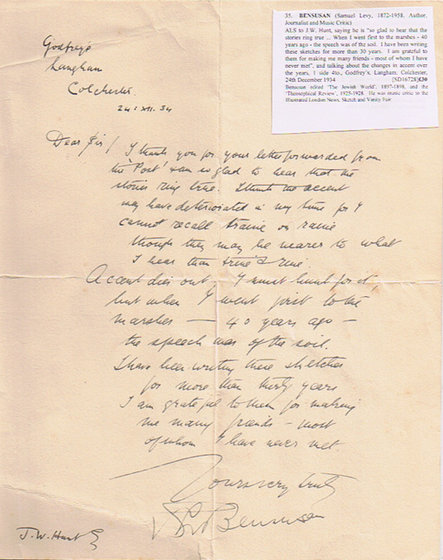 35. BENSUSAN (Samuel Levy, 1872-1958, Author,
Journalist and Music Critic)
ALS to J.W. Hunt, saying he is "so glad to hear that the
stories ring true ... When I went first to the marshes - 40
years ago - the speech was of the soil. I have been writing
these sketches for more than 30 years. I am grateful to
them for making me many friends - most of whom I have
never met", and talking about the changes in accent over
the years, 1 side 4to., Godfrey's, Langham, Colchester,
24th December 1934 [SD16728]£30
Bensusan edited 'The Jewish World', 1897-1898, and the
'Theosophical Review', 1925-1928. He was music critic to the
Illustrated London News, Sketch and Vanity Fair.
Godfreys
Langham
Colchester
24.XII.34
Dear Sir/ I thank you for your letter forwarded from
the 'Post' & am so glad to hear that the
stories ring true. I think the accent
may have deteriorated in my time for I
cannot recall traine or raine
though they may be nearer to what
I hear than
Accent dies out. I must hunt for it,
but when I went first to the
marshes — 40 years ago —
the speech was of the soil.
I have been writing these sketches
for more than thirty years
I am grateful to them for making
me many friends - most
of whom I have never met.
Yours very truly
S L Bensusan
J. W. Hunt Esq